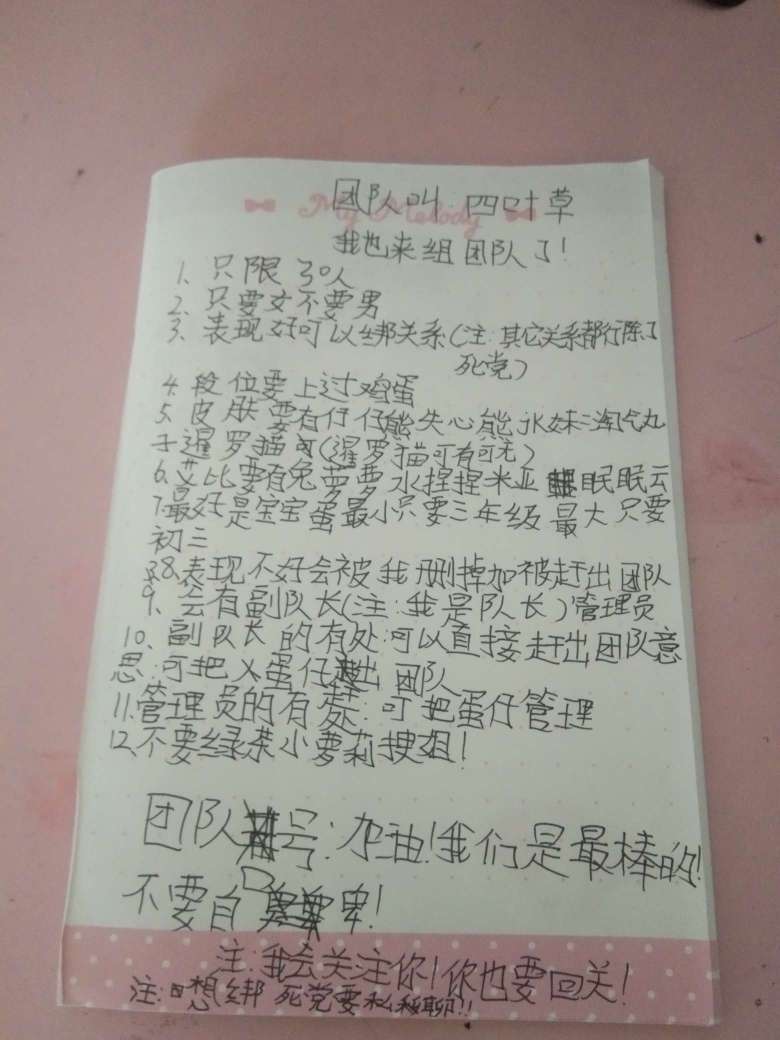 My Melody
团队叫 四叶草
我也来组团队了!
1、只限30人
2、只要女不要男
3、表现好可以绑关系(注:其它关系都行除了
死党)
4、段位要上过鸡蛋
5、皮肤要有仔仔熊失心熊冰妹淘气丸
子暹罗猫可(暹罗猫可有可无)
6、艾比要有兔萝萝水捏捏米亚眠眠云
7、最好是宝宝蛋最小只要三年级最大只要
初三
8、表现不好会被我删掉加被赶出团队
9、会有副队长(注:我是队长)管理员
10、副队长的有处:可以直接赶出团队意
思:可把人蛋仔赶出团队
11、管理员的有处:可把蛋仔管理
12、不要绿茶小萝莉捞姐!
团队口号:加油!我们是最棒的!
不要自卑!
注:我会关注你!你也要回关!
注:想绑死党要私聊!!